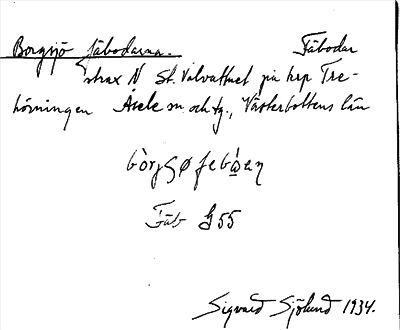 Borgsjö fäbodarna. Fäbodar
strax N St. Valvattnet på hrp Tre-
hörningen Åsele sn. och tg., Västerbottens län
Fäb G 55
Sigvard Sjölund 1934.